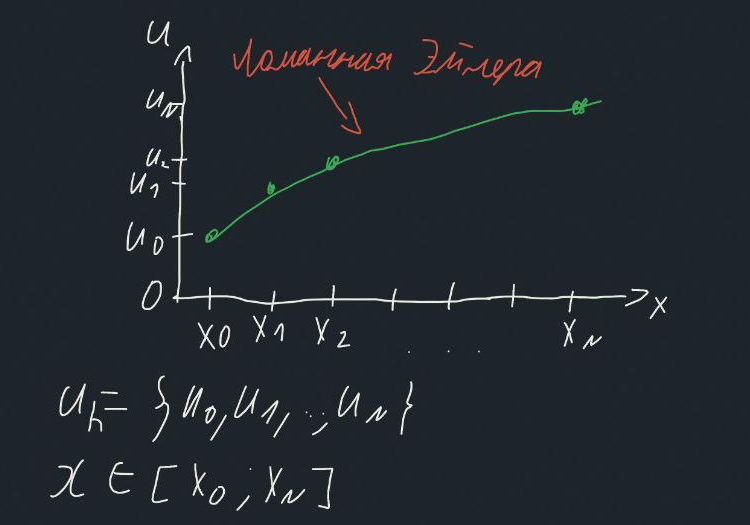 u
Ломанная Эйлера
u_N
u_2
u_1
u_0
0
x_0 x_1 x_2 . . . x_N
x
u_h = {u_0, u_1, ..., u_N}
x ∈ [x_0; x_N]